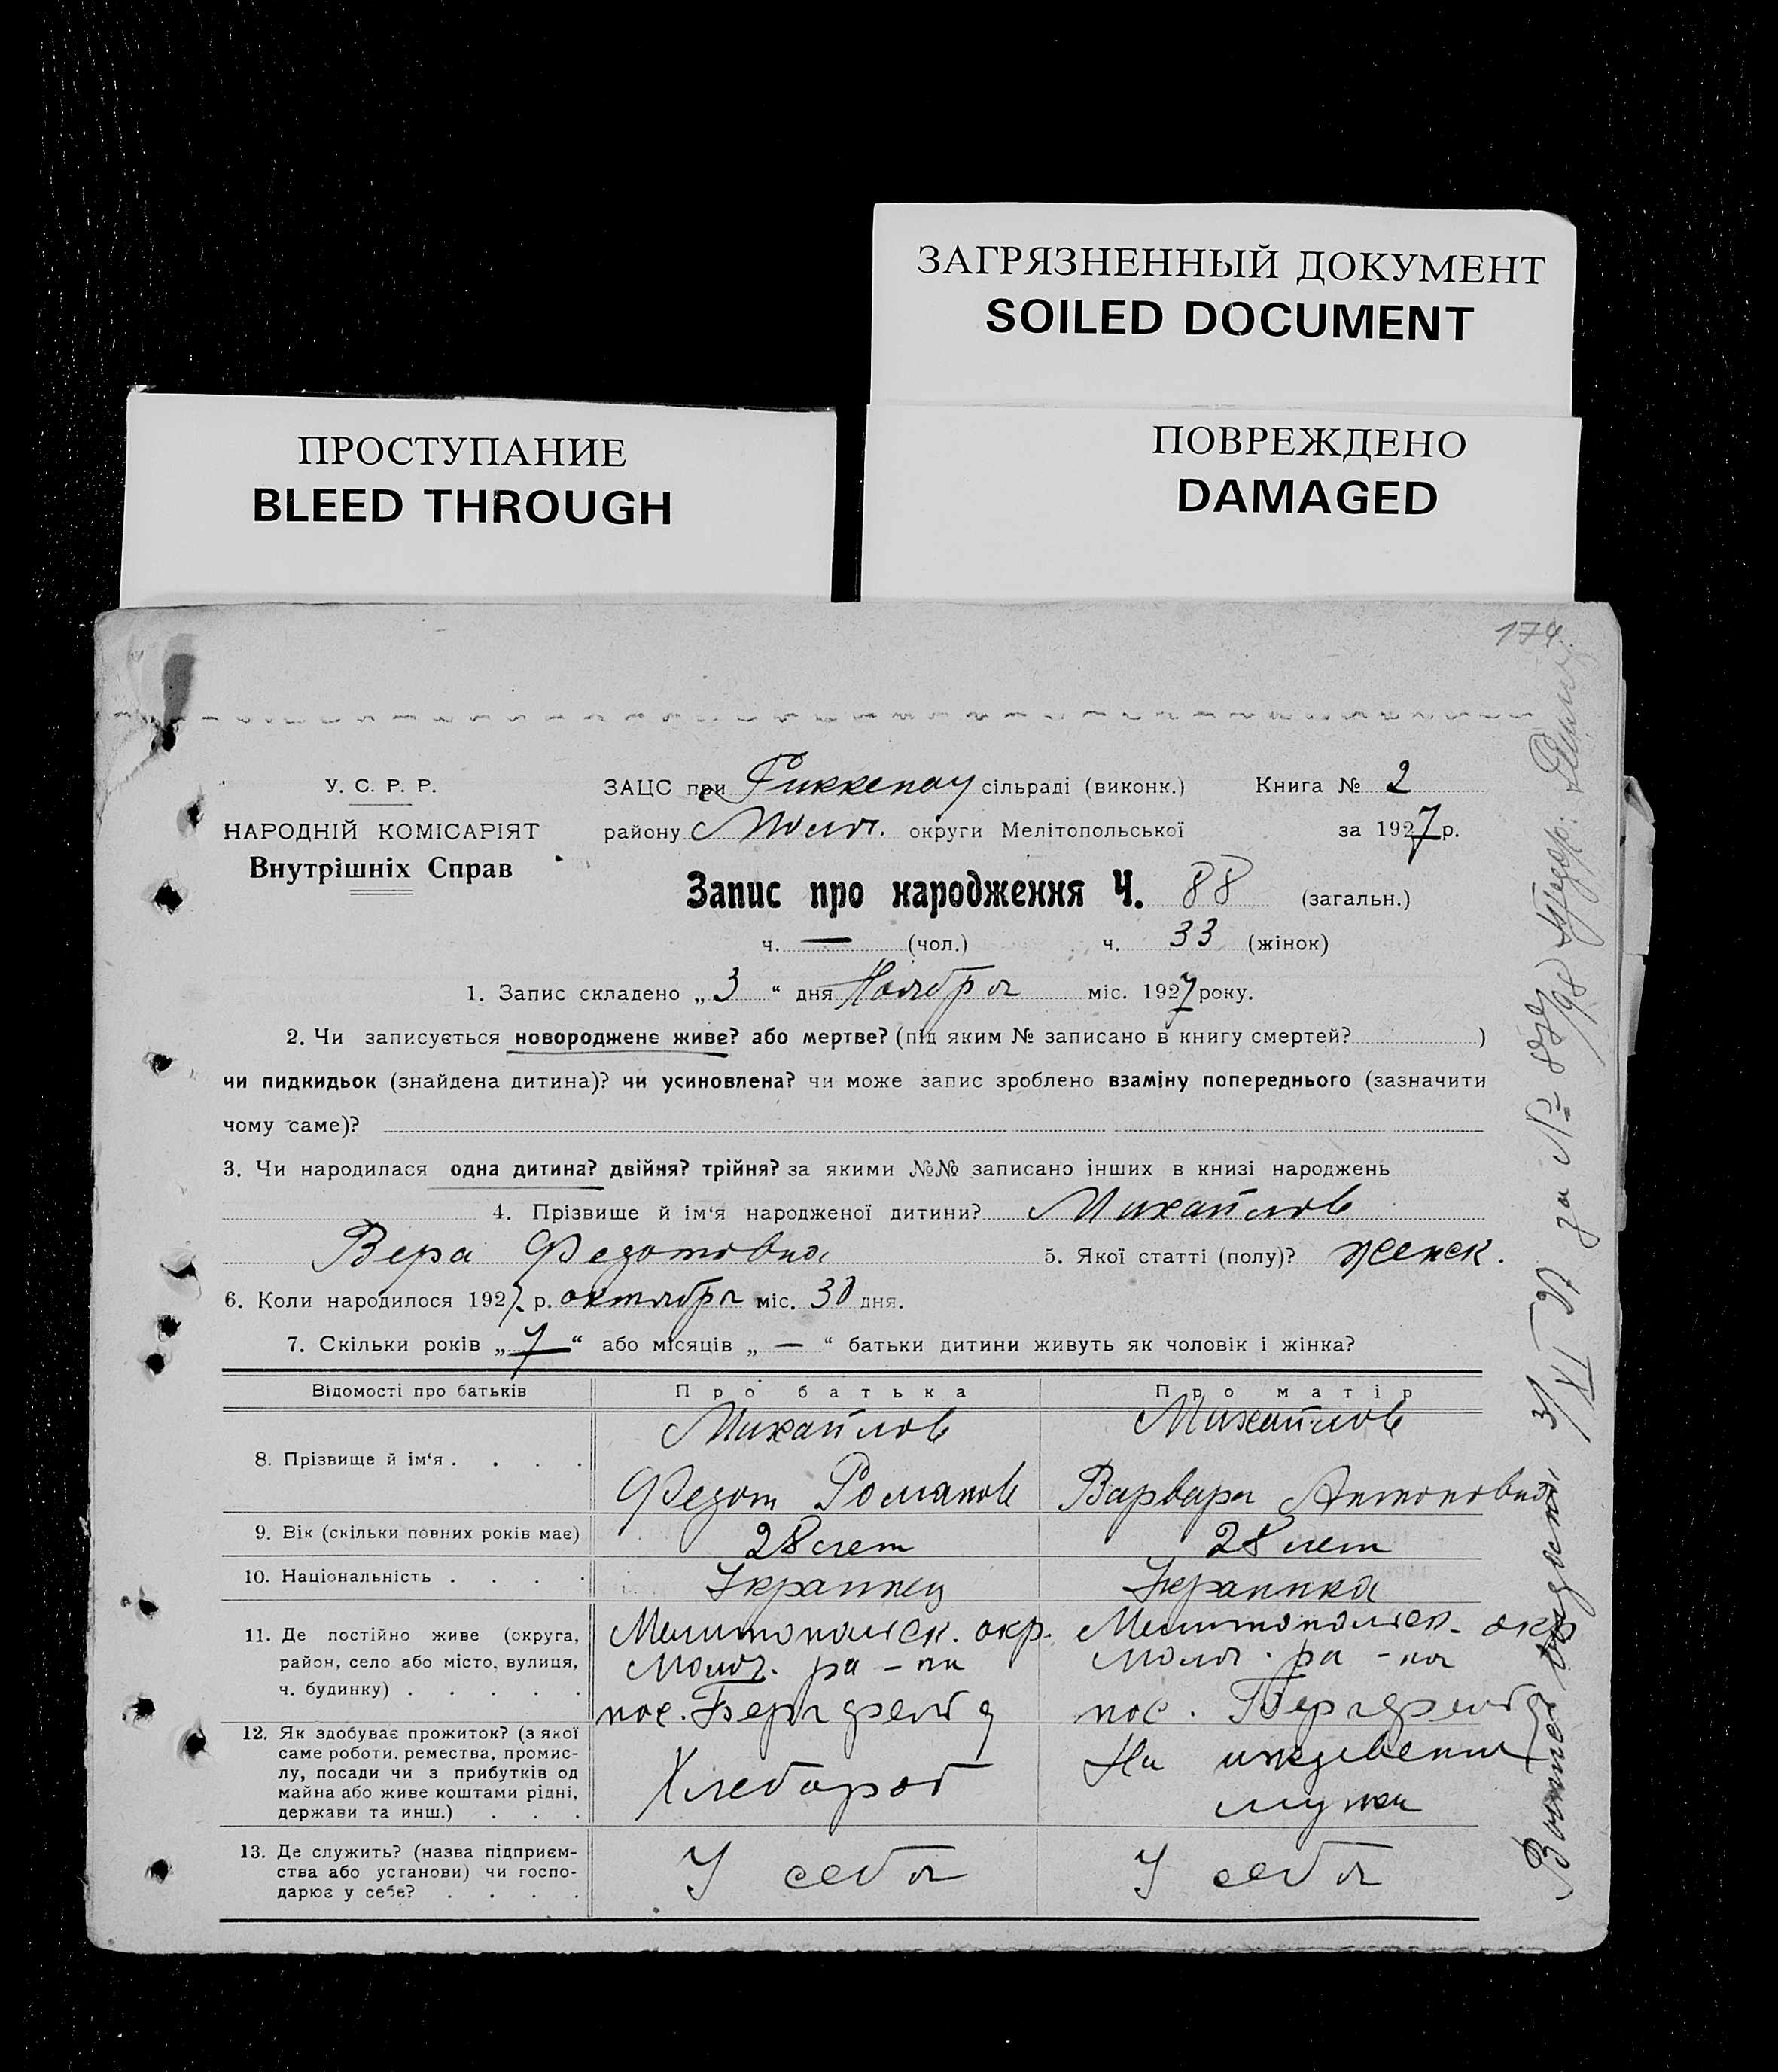 ЗАГРЯЗНЕННЫЙ ДОКУМЕНТ
SOILED DOCUMENT
ПРОСТУПАНИЕ
BLEED THROUGH
ПОВРЕЖДЕНО
DAMAGED
174
У. С. Р. Р.
НАРОДНІЙ КОМІСАРІЯТ
Внутрішніх Справ
ЗАЦС при Риккенау сільраді (виконк.) Книга № 2
району Молоч. округи Мелітопольської за 1927 р.
Запис про народження Ч. 88 (загальн.)
ч. — (чол.) ч. 33 (жінок)
1. Запис складено „ 3 “ дня Ноября міс. 1927 року.
2. Чи записується новороджене живе? або мертве? (під яким № записано в книгу смертей? )
чи пидкидьок (знайдена дитина)? чи усиновлена? чи може запис зроблено взаміну попереднього (зазначити
чому саме)?
3. Чи народилася одна дитина? двійня? трійня? за якими №№ записано інших в книзі народжень
4. Прізвище й ім‘я народженої дитини? Михайлов
Вера Федотовна 5. Якої статті (полу)? женск.
6. Коли народилося 1927 р. октября міс. 30 дня.
7. Скільки років „ 7 “ або місяців „ — “ батьки дитини живуть як чоловік і жінка?
Відомості про батьків Про батька Про матір
8. Прізвище й ім‘я . . . . Михайлов Михайлов
Федот Романов Варвара Антоновна
9. Вік (скільки повних років має) 28 лет 28 лет
10. Національність . . . . Украинец Украинка
11. Де постійно живе (округа, Мелитопольск. окр. Мелитопольск. окр
район, село або місто, вулиця, Молоч. ра-на Молоч. ра-на
ч. будинку) . . . . . пос. Бергфельд пос. Бергфельд
12. Як здобуває прожиток? (з якої
саме роботи, ремества, промис-
лу, посади чи з прибутків од
майна або живе коштами рідні,
держави та инш.) . . . Хлебороб На иждевении
мужа
13. Де служить? (назва підприєм-
ства або установи) чи госпо-
дарює у себе? . . . . У себя У себя
3/XI 27 за №